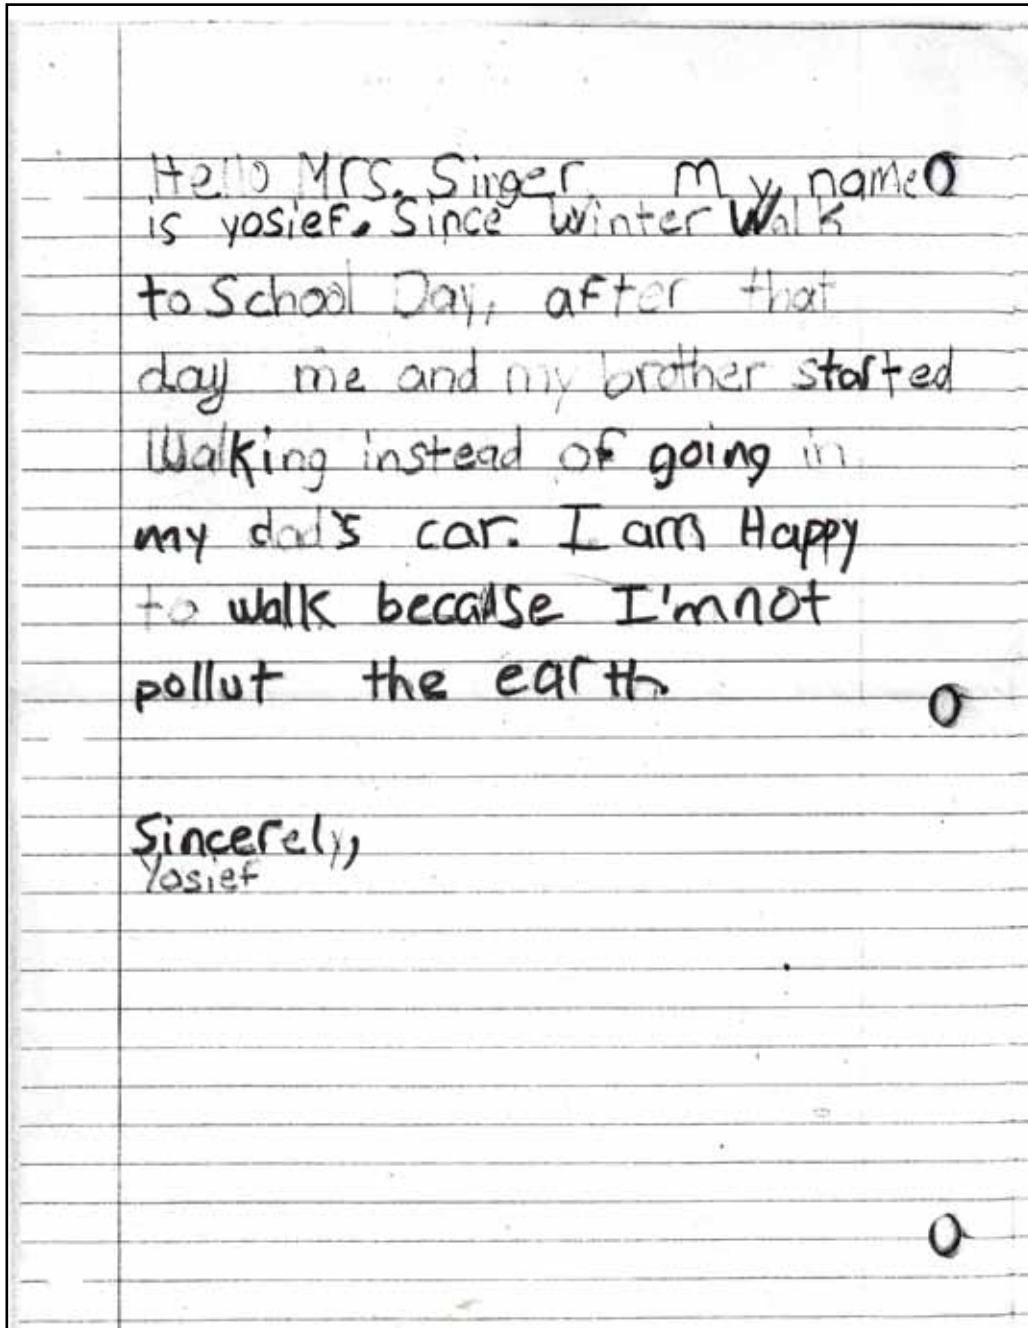 Hello Mrs. Singer, my name
is yosief. Since Winter Walk
to School Day, after that
day me and my brother started
Walking instead of going in
my dad's car. I am Happy
to walk because I'm not
pollut the earth.
Sincerely,
Yosief